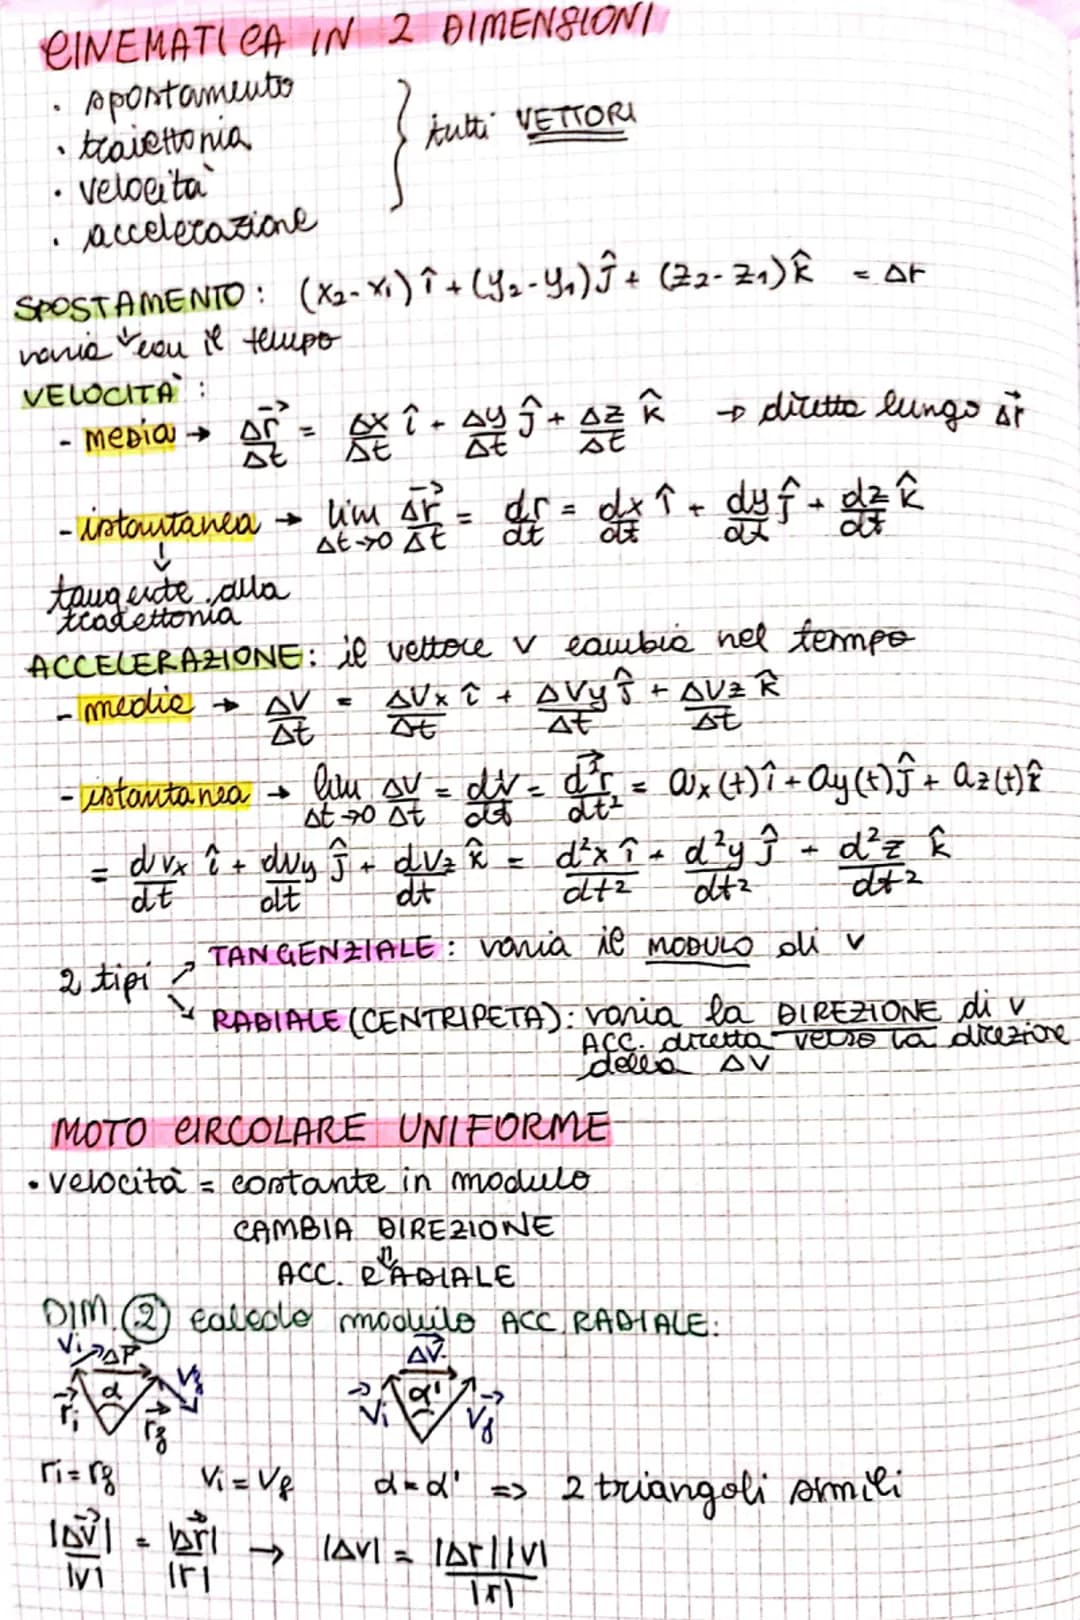 CINEMATICA IN 2 DIMENSIONI
· spostamento
· traiettoria
· velocità
· accelerazione
} tutti VETTORI
SPOSTAMENTO: (x₂-x₁) î + (y₂-y₁) ĵ + (z₂-z₁) k̂ = Δr
varia con il tempo
VELOCITÀ:
- media → Δr⃗/Δt = Δx/Δt î + Δy/Δt ĵ + Δz/Δt k̂ → diretta lungo Δr⃗
- istantanea → lim Δt→0 Δr⃗/Δt = dr/dt = dx/dt î + dy/dt ĵ + dz/dt k̂
↓
tangente alla
traiettoria
ACCELERAZIONE: il vettore v cambia nel tempo
- media → Δv/Δt = Δvx/Δt î + Δvy/Δt ĵ + Δvz/Δt k̂
- istantanea → lim Δt→0 Δv/Δt = dv/dt = d²r⃗/dt² = ax(t) î + ay(t) ĵ + az(t) k̂
= dvx/dt î + dvy/dt ĵ + dvz/dt k̂ = d²x/dt² î + d²y/dt² ĵ + d²z/dt² k̂
2 tipi ↗ TANGENZIALE: varia il MODULO di v
↘ RADIALE (CENTRIPETA): varia la DIREZIONE di v
ACC. diretta verso la direzione
della Δv
MOTO CIRCOLARE UNIFORME
· velocità = costante in modulo
CAMBIA DIREZIONE
⇓
ACC. RADIALE
DIM. ② calcolo modulo ACC. RADIALE:
vi Δr⃗ α vf r⃗i r⃗f
Δv⃗ α' v⃗i v⃗f
ri = rf vi = vf α = α' => 2 triangoli simili
|Δv⃗|/|v| = |Δr⃗|/|r| → |Δv| = |Δr||v|/|r|